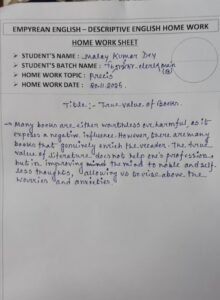 EMPYREAN ENGLISH – DESCRIPTIVE ENGLISH HOME WORK
HOME WORK SHEET
➤ STUDENT'S NAME : Malay Kumar Dey
➤ STUDENT'S BATCH NAME :
➤ HOME WORK TOPIC : Precis
➤ HOME WORK DATE : 20.11.2025
Title :- True value of Books.
→ Many books are either worthless or harmful, as it
exposes a negative influence. However, there are many
books that genuinely enrich the reader. The true
value of literature does not help one's profession,
but in improving mind the mind to noble and self-
less thoughts, allowing us to rise above the
worries and anxieties.